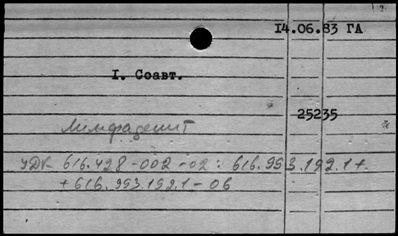 14.06.83 ГА
I. Соавт.
25235
Лимфаденит
УДК 616.428-002-02:616.993.192.1+
+616.993.192.1-06